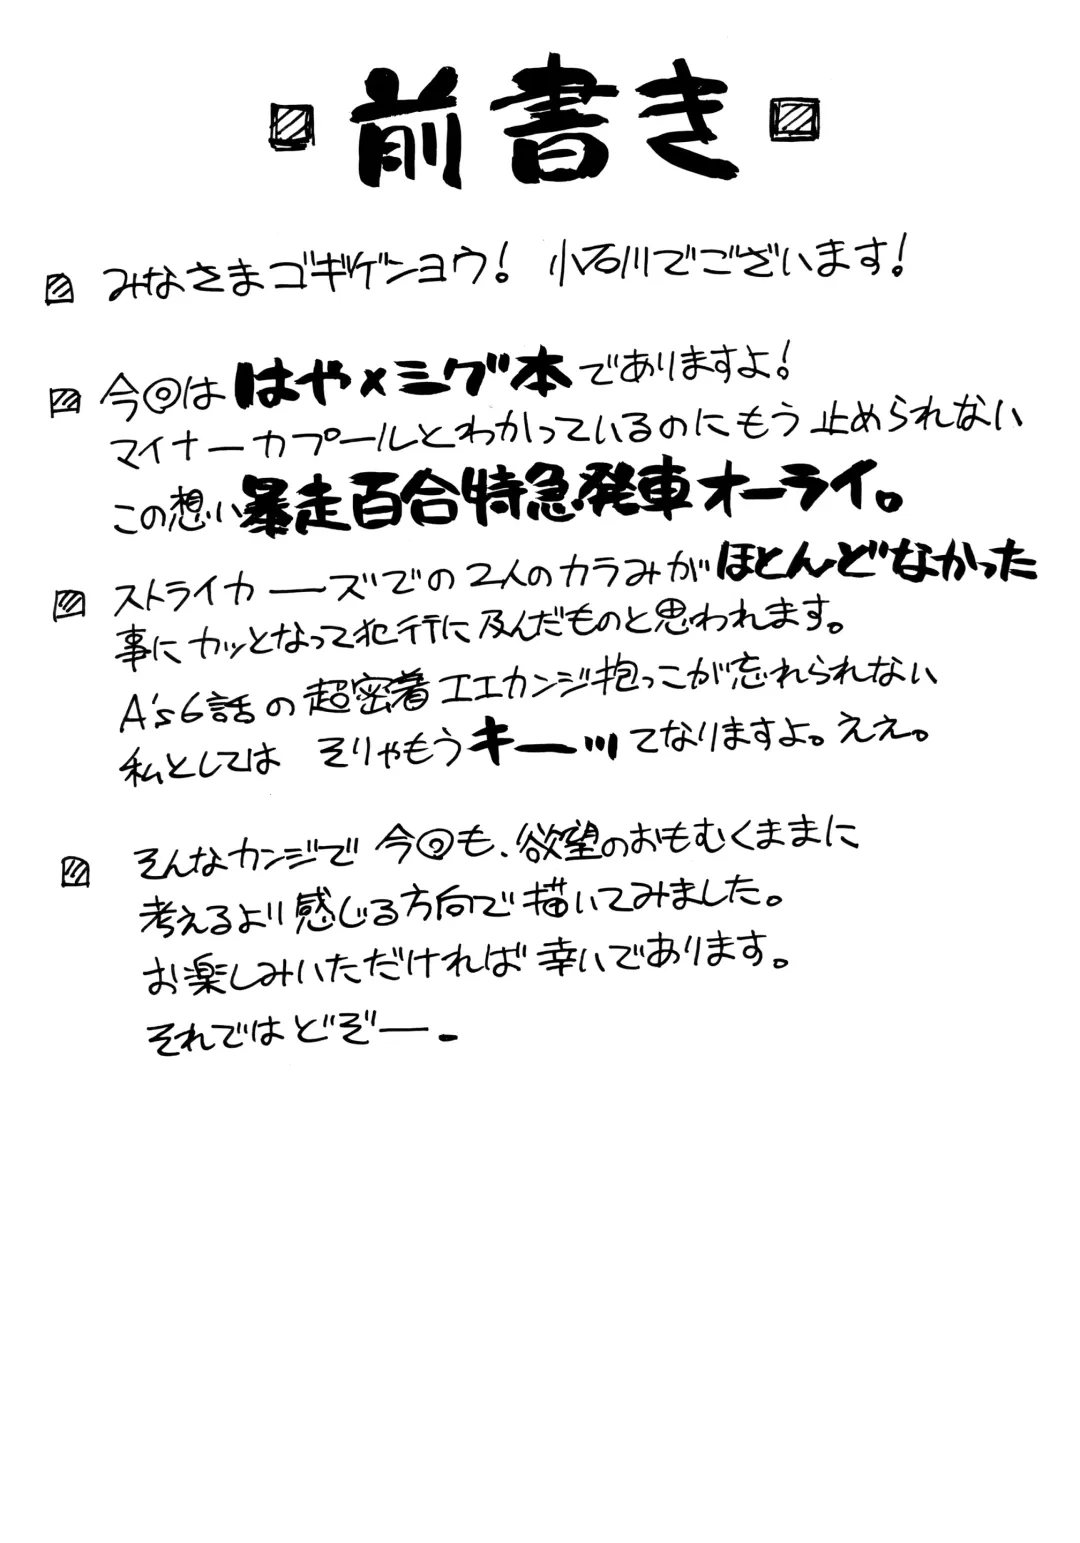 前書き
みなさまゴキゲンヨウ! 小石川でございます!
今回は はや×ミグ本でありますよ!
マイナーカプールとわかっているのにもう止められない
この想い暴走百合特急発車オーライ。
ストライカーーズでの2人のカラみがほとんどなかった
事にカッとなって犯行に及んだものと思われます。
A's6話の超密着エエカンジ抱っこが忘れられない
私としては そりゃもうキーッてなりますよ。ええ。
そんなカンジで 今回も、欲望のおもむくままに
考えるより感じる方向で描いてみました。
お楽しみいただければ幸いであります。
それではどぞー.